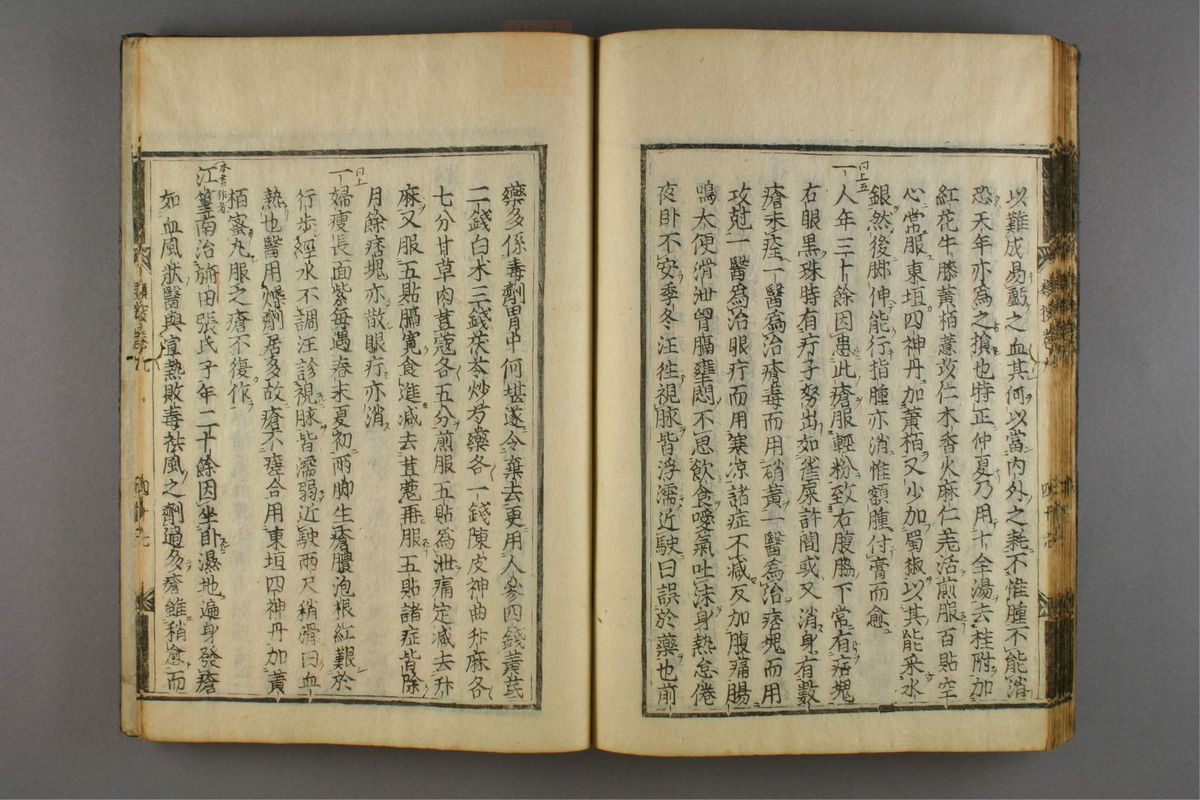 以難成易虧之血其何以當內外之耗不惟腫不能消
恐天年亦為之損也時正仲夏乃用十全湯去桂附加
紅花牛膝黃栢薏苡仁木香火麻仁羌活煎服百貼空
心常服東垣四神丹加黃栢又少加蜀椒以其能来水
銀然後脚伸能行指腫亦消惟額腫付膏而愈
同上五
一人年三十餘因患此瘡服輕粉致右腹脇下常有痞塊
右眼黑珠時有疔子努出如雀屎許間或又消身有數
瘡未痊一醫為治瘡毒而用硝黃一醫為治痞塊而用
攻尅一醫為治眼疔而用寒凉諸症不减反加腹痛腸
鳴大便滑泄胷膈壅悶不思飲食噯氣吐沫身熱怠倦
夜卧不安季冬汪徃視脉皆浮濡近駛曰誤於藥也前
藥多係毒劑胃中何堪遂令棄去更用人參四錢黃芪
二錢白术三錢茯苓炒芍藥各一錢陳皮神曲升麻各
七分甘草肉荳蔻各五分煎服五貼為泄痛定减去升
麻又服五貼膈寛食進减去荳蔻再服五貼諸症皆除
月餘痞塊亦散眼疔亦消
同上
一婦瘦長面紫每遇春末夏初兩脚生瘡膿泡根紅艱於
行步經水不調汪診視脉皆濡弱近駛兩尺稍滑曰血
熱也醫用燥劑居多故瘡不瘥合用東垣四神丹加黃
栢蜜丸服之瘡不復作
本書作者
江篁南治旃田張氏子年二十餘因坐卧濕地遍身發瘡
如血風狀醫與宣熱敗毒祛風之劑過多瘡雖稍愈而